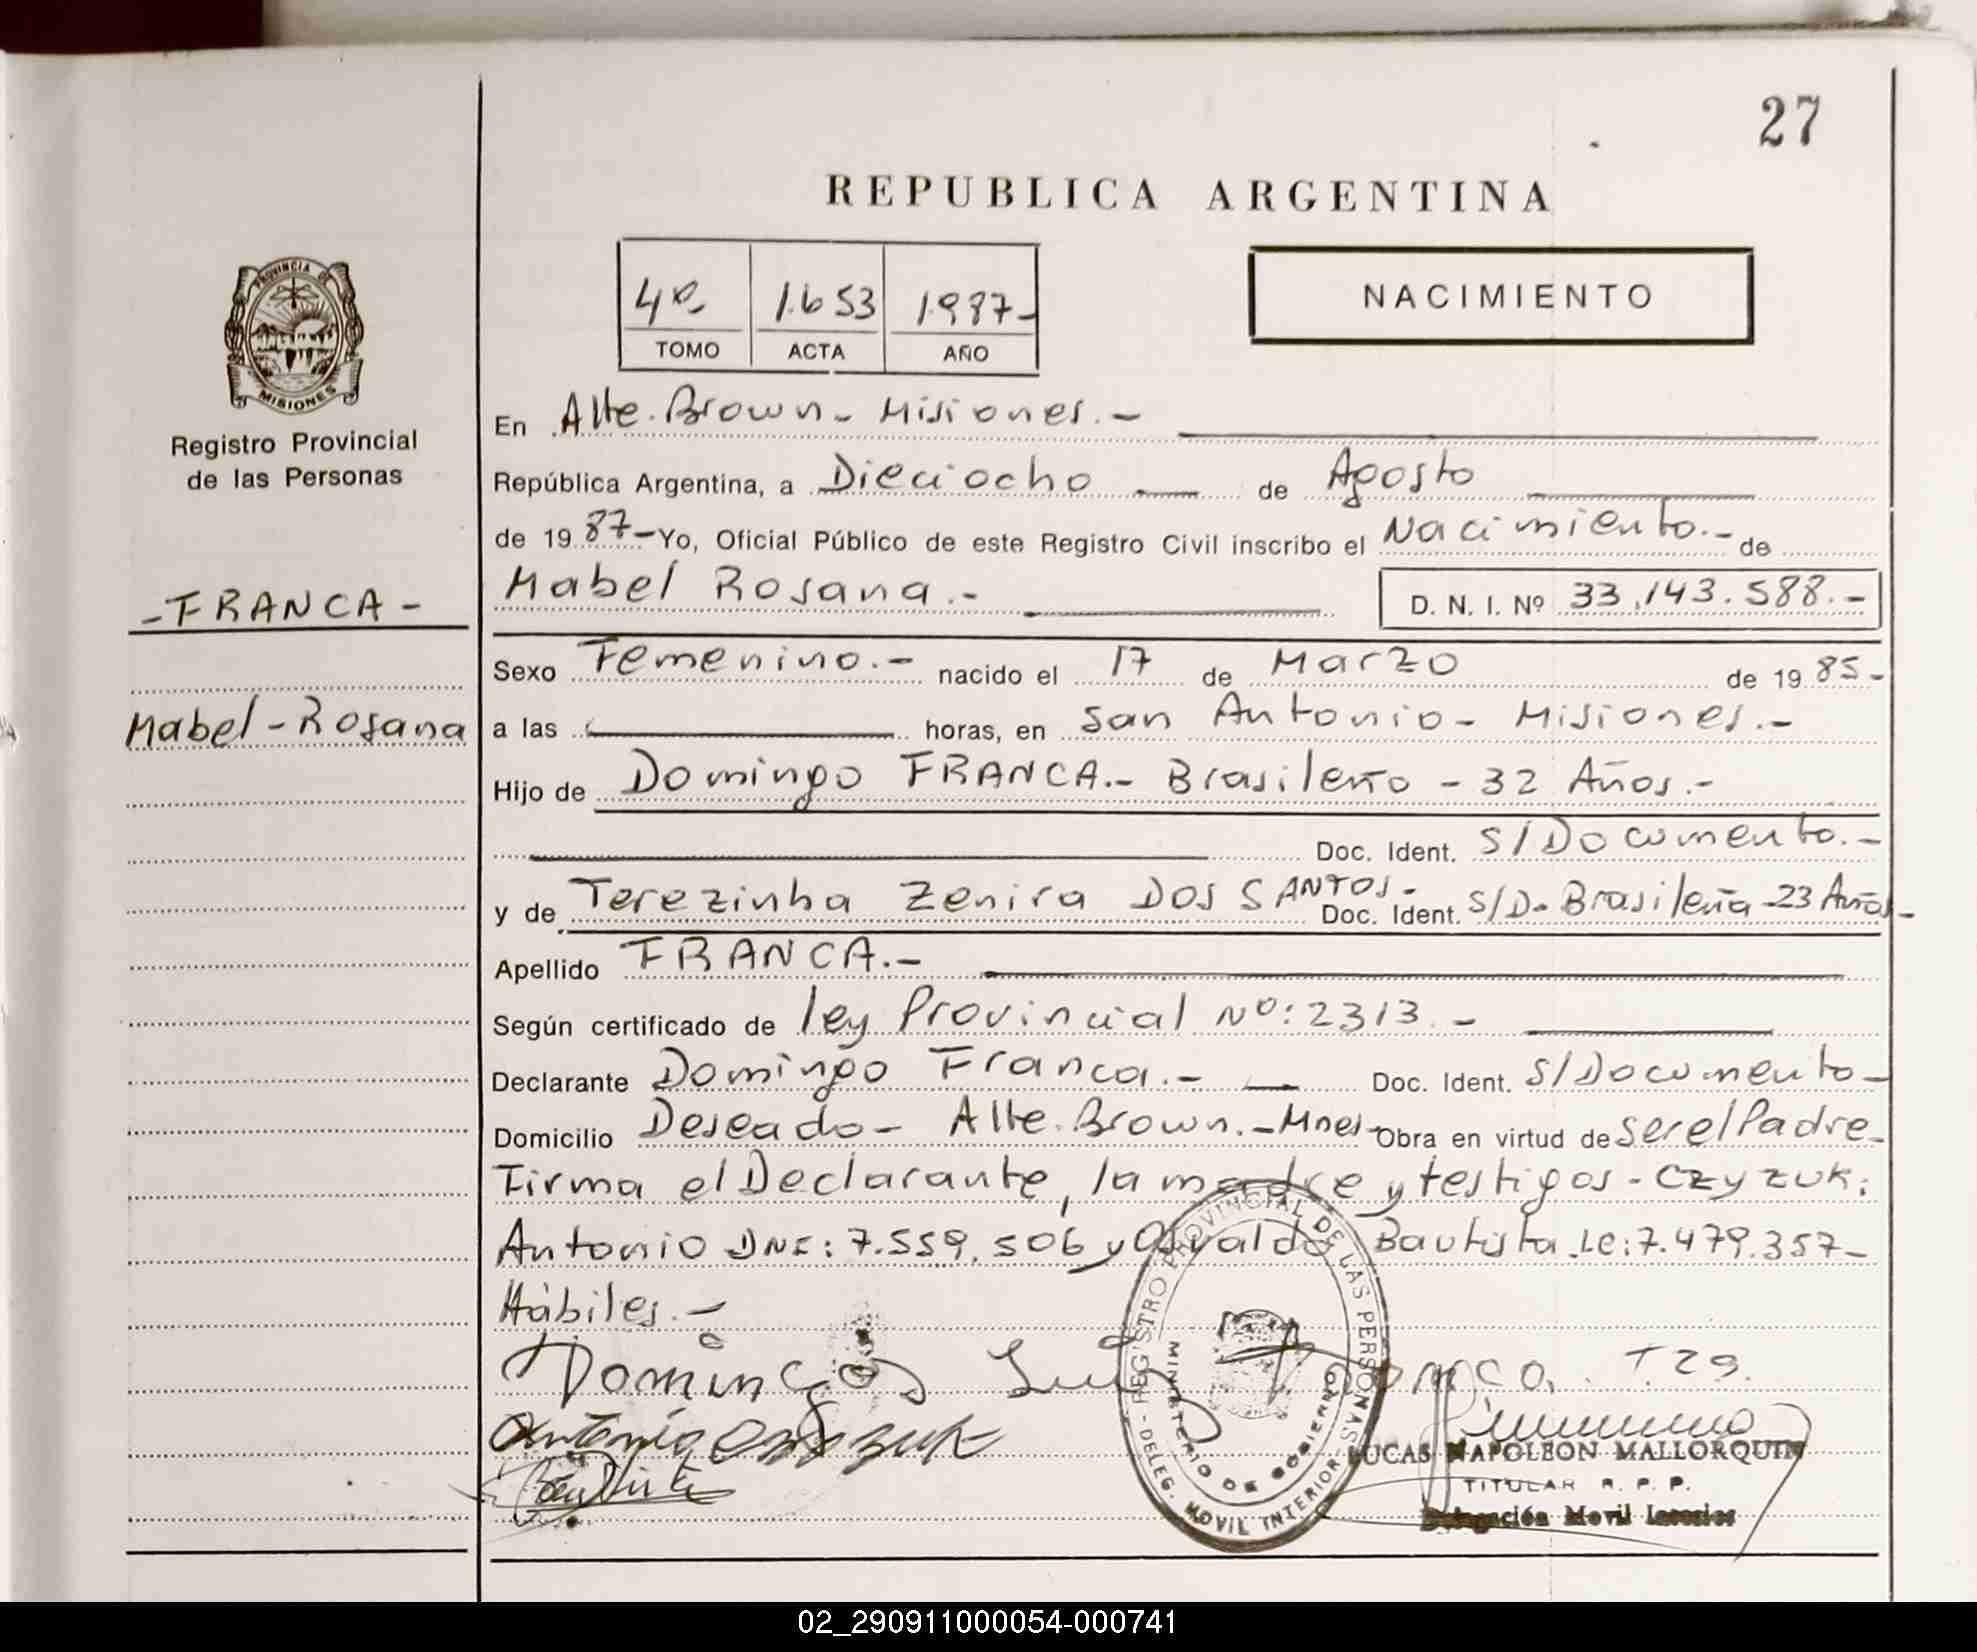 27
REPUBLICA ARGENTINA
4º- 1.653 1.987-
TOMO ACTA AÑO
NACIMIENTO
PROVINCIA DE
MISIONES
Registro Provincial
de las Personas
-FRANCA-
Mabel-Rosana
En Alte. Brown- Misiones.-
República Argentina, a Dieciocho de Agosto
de 1987-Yo, Oficial Público de este Registro Civil inscribo el Nacimiento.- de
Mabel Rosana.- D. N. I. Nº 33.143.588.-
Sexo Femenino.- nacido el 17 de Marzo de 1985-
a las horas, en San Antonio- Misiones.-
Hijo de Domingo FRANCA.- Brasileño - 32 Años.-
Doc. Ident. S/Documento.-
y de Terezinha Zenira DOS SANTOS.- Doc. Ident. S/D- Brasileña-23 Años-
Apellido FRANCA.-
Según certificado de ley Provincial Nº: 2313.-
Declarante Domingo Franca.- Doc. Ident. S/Documento-
Domicilio Deseado- Alte. Brown.-Mnes- Obra en virtud de ser el Padre-
Firma el Declarante, la madre y testigos- CZYZUK:
Antonio DNI: 7.559.506 y Osvaldo Bautista LE: 7.479.357-
Hábiles.-
Domingos Luiz Franca. T29.
Antonio Czyzuk
Bautista
REGISTRO PROVINCIAL DE LAS PERSONAS
MINISTERIO DE GOBIERNO
DELEG. MOVIL INTERIOR
LUCAS NAPOLEON MALLORQUIN
TITULAR R. P. P.
Delegación Movil Interior
02_290911000054-000741